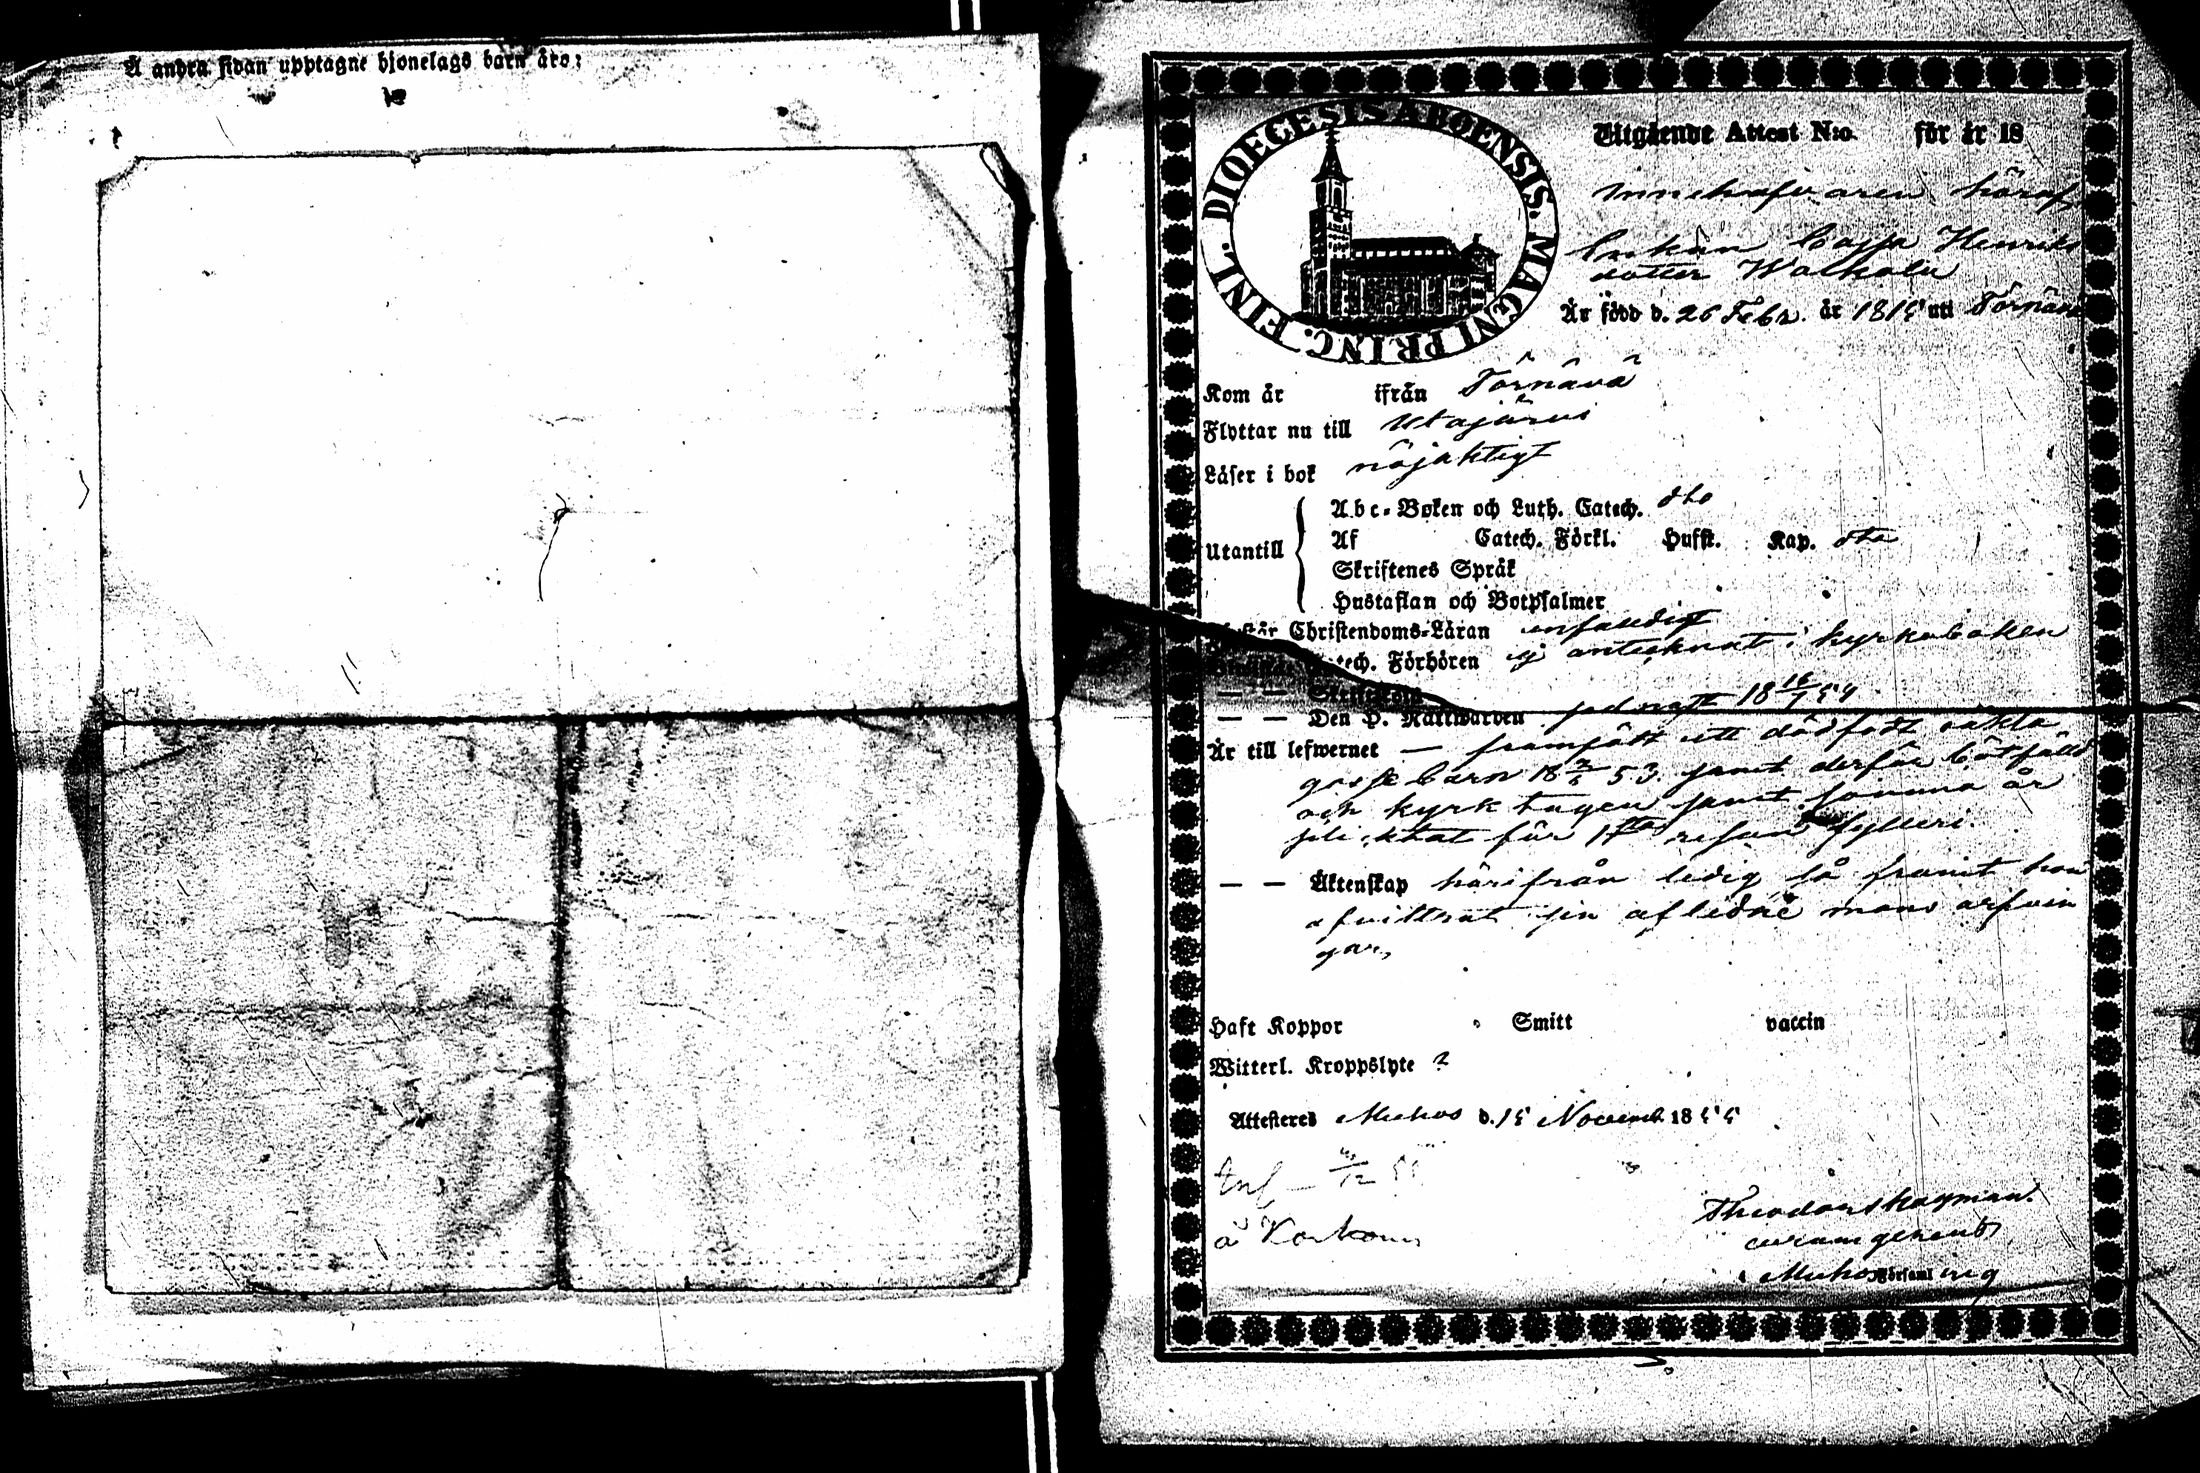 Å andra sidan upptagne hjonelags barn äro:
DIOECESIS ABOENSIS. MAGNI PRINC. FINL.
Utgående Attest N:o. för år 18
Innehafvaren häraf,
Enkan Cajsa Henriks
dotter Walkola
Är född d. 26 Febr. år 1815 uti Törnävä
Kom år ifrån Törnävä
Flyttar nu till Utajärvi
Läser i bok nöjaktigt
Utantill
Abc-Boken och Luth. Catech. dto
Af Catech. Förkl. Hufst. Kap. dto
Skriftenes Språk
Hustaflan och Botpsalmer
Christendoms-Läran enfaldigt
Catech. Förhören ej antecknat i kyrkoboken
— — Skriftskola
— — Den H. Nattwarden 18
Är till lefwernet — framfödt ett dödfödt oäkta
gosse barn 18 53 samt derför bötfälld
och kyrktagen samt samma år
pliktat för 1sta resan fylleri.
— — Äktenskap härifrån ledig så framt hon
afvittrat sin aflidne mans arfvin
gar,
Haft Koppor Smitt vaccin
Witterl. Kroppslyte ?
Attesteras Muhos d. 15 Novemb. 1855
å
Theodor
curam gerens
i Muhos Församling